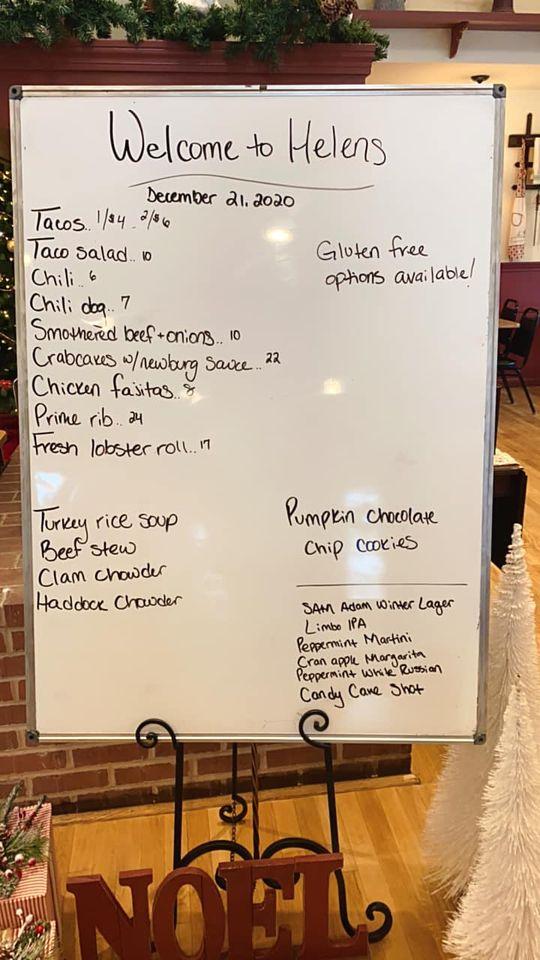 Welcome to Helens
December 21, 2020
Tacos.. 1/$4 - 2/$6
Taco Salad.. 10
Chili.. 6
Chili dog.. 7
Smothered beef+onions.. 10
Crabcakes w/newburg Sauce.. 22
Chicken fajitas.. 8
Prime rib.. 24
Fresh lobster roll.. 17
Gluten free
options available!
Turkey rice soup
Beef stew
Clam chowder
Haddock Chowder
Pumpkin Chocolate
Chip Cookies
SAM Adam Winter Lager
Limbo IPA
Peppermint Martini
Cran apple Margarita
Peppermint White Russian
Candy Cane Shot
NOEL